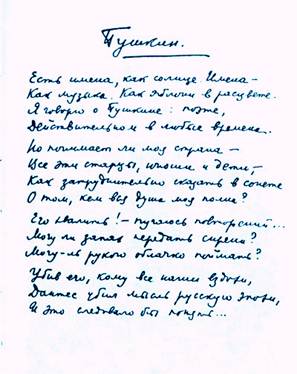 Пушкин.
Есть имена, как солнце! Имена –
Как музыка. Как яблони в расцвете.
Я говорю о Пушкине: поэте,
Действительном в любые времена.
Но понимает ли моя страна –
Все эти старцы, юноши и дети, –
Как затруднительно сказать в сонете
О том, кем вся душа моя полна?
Его хвалить! – пугаюсь повторений...
Могу ли запах передать сирени?
Могу-ль рукою облачко поймать?
Убив его, кому все наши вздохи,
Дантес убил мысль русскую эпохи,
И это следовало бы понять...